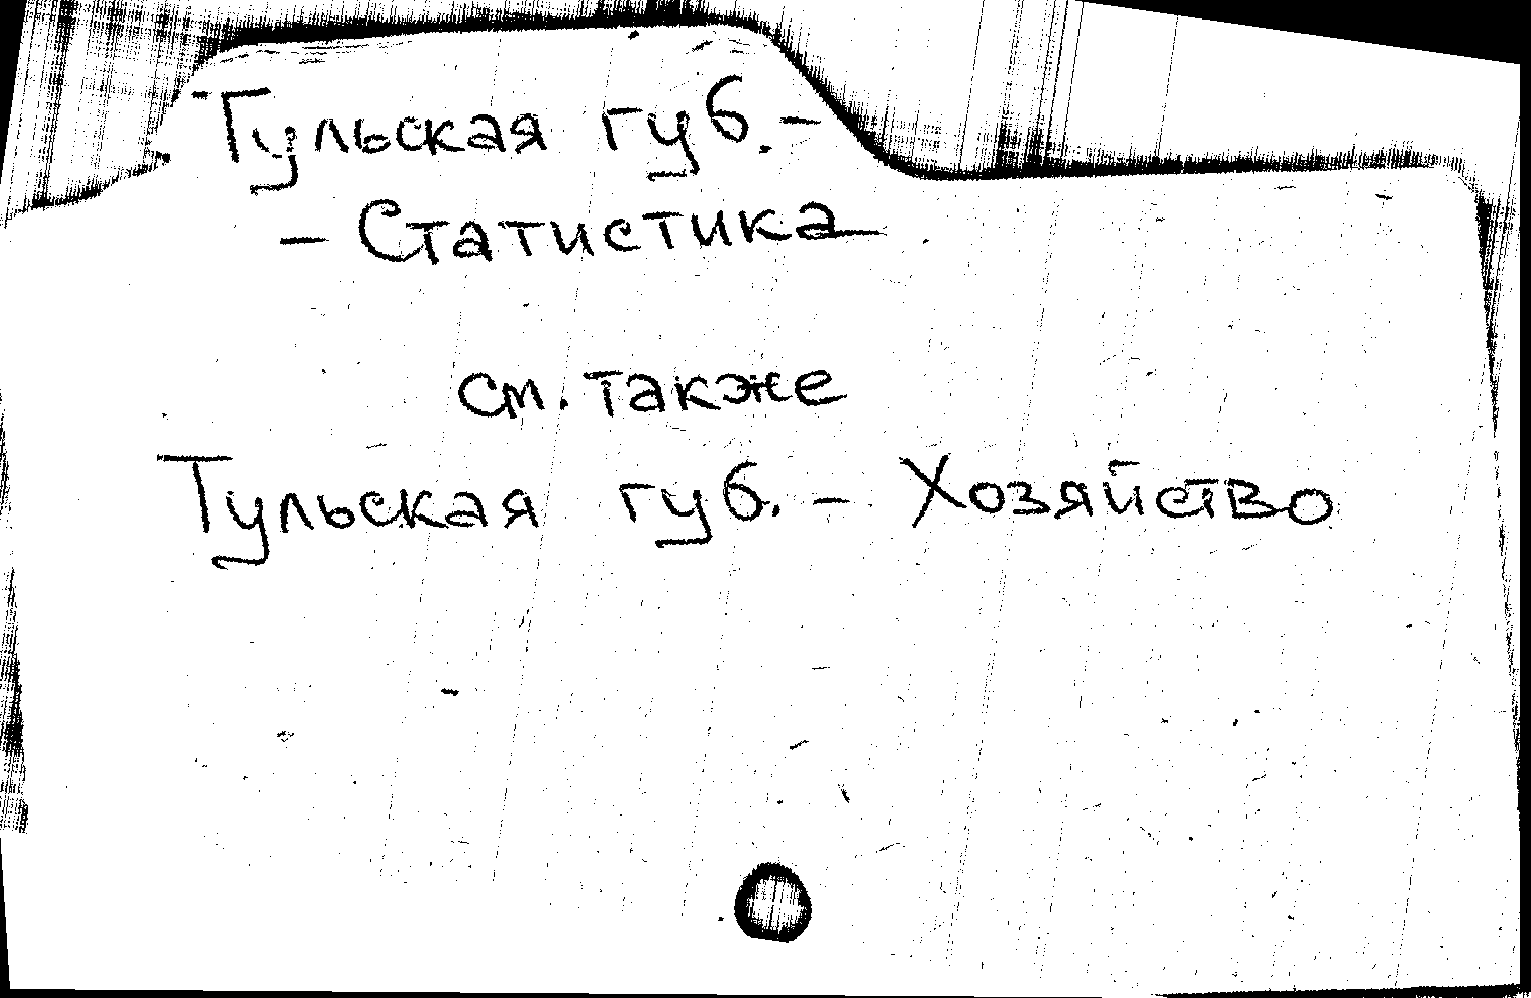 Тульская губ. –
– Статистика
см. также
Тульская губ. – Хозяйство